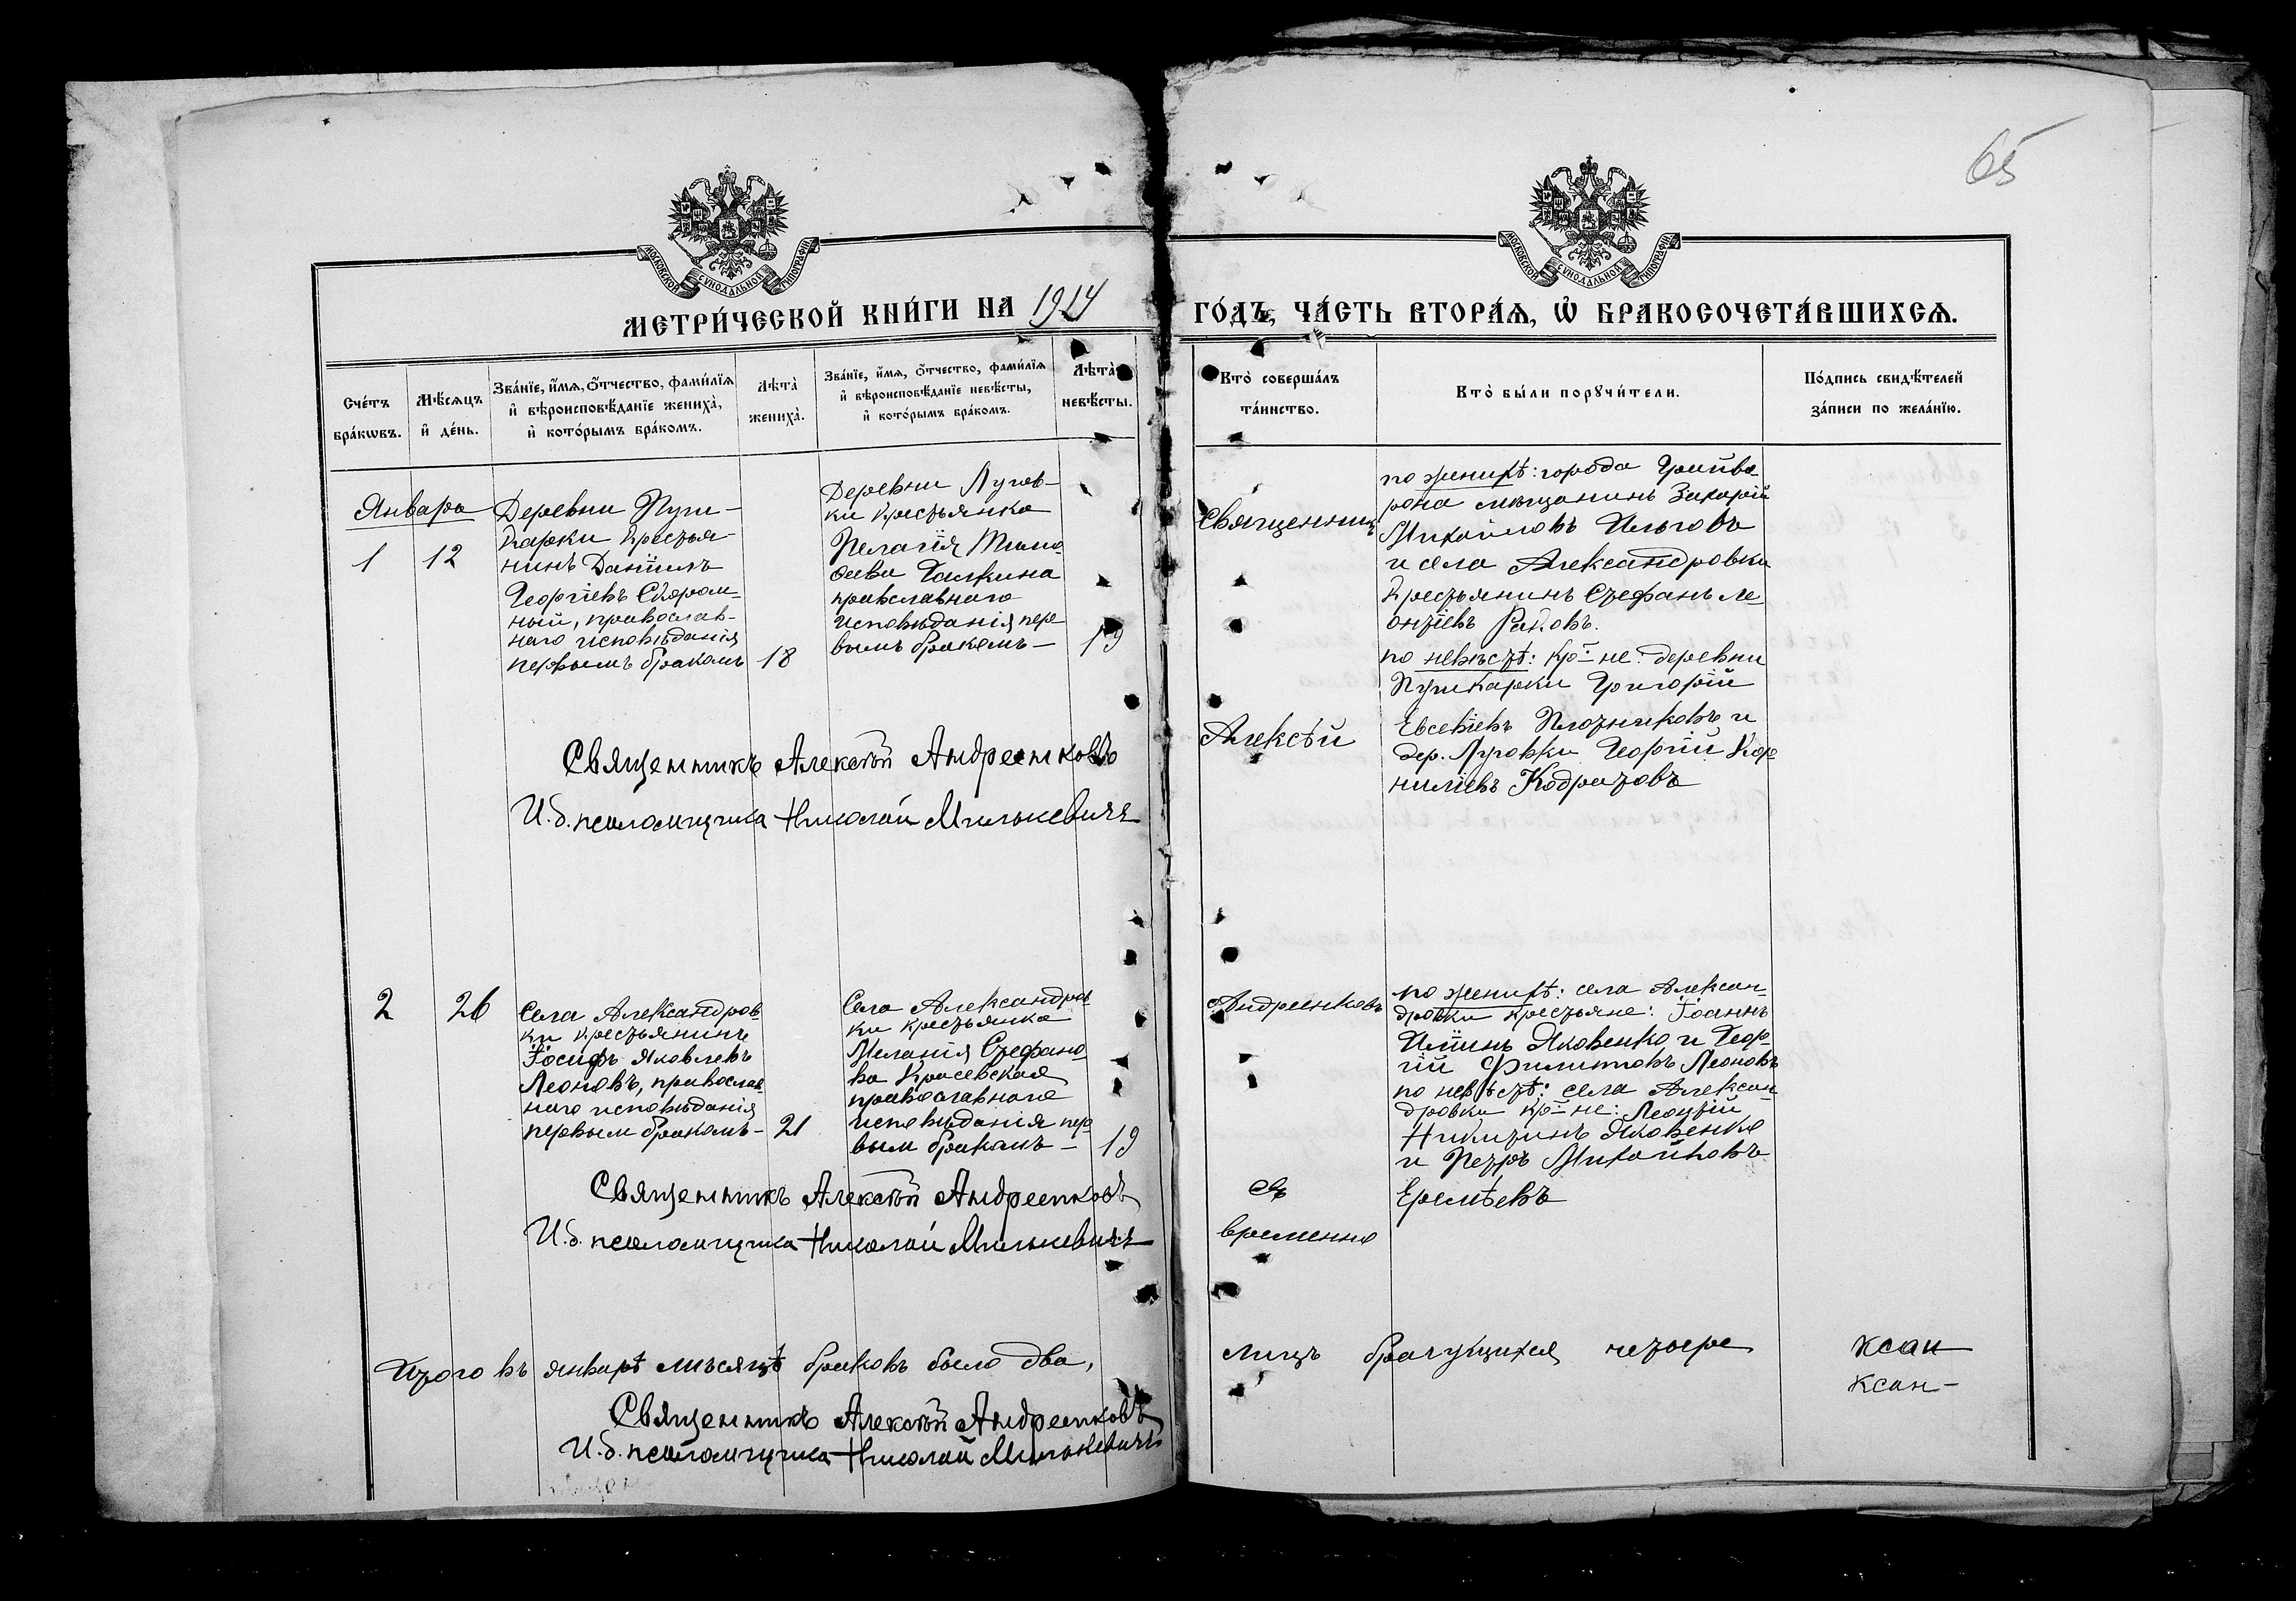 65
МОСКОВСКОЙ СѴНОДАЛЬНОЙ ТИПОГРАФІИ
МОСКОВСКОЙ СѴНОДАЛЬНОЙ ТИПОГРАФІИ
МЕТРИ́ЧЕСКОЙ КНИ́ГИ НА 1914 ГО́ДЪ, ЧА́СТЬ ВТОРА́Я, Ѡ҆ БРАКОСОЧЕТА́ВШИХСѦ.
Сче́тъ бра́кѡвъ.
Мѣ́сяцъ и҆ де́нь.
Зва́нїе, и҆́мя, ѻ҆́тчество, фами́лїя и҆ вѣроисповѣ́данїе жениха̀, и҆ кото́рымъ бра́комъ.
Лѣта̀ жениха̀.
Зва́нїе, и҆́мя, ѻ҆́тчество, фами́лїя и҆ вѣроисповѣ́данїе невѣ́сты, и҆ кото́рымъ бра́комъ.
Лѣта̀ невѣ́сты.
Кто̀ соверша́лъ та́инство.
Кто̀ бы́ли порꙋчи́тели.
По́дпись свидѣ́телей за́писи по жела́нїю.
Января
1
12
Деревни Пуш-
карки крестья-
нинъ Даніилъ
Георгіевъ Скором-
ный, православ-
наго исповѣданія
первымъ бракомъ
18
Деревни Лугов-
ки крестьянка
Пелагія Тимо-
ѳеева Галкина
православнаго
исповѣданія пер-
вымъ бракомъ —
19
Священникъ
Алексѣй
Андреенковъ
по женихѣ: города Грайво-
рона мѣщанинъ Захарій
Михайловъ Ильговъ
и села Александровки
крестьянинъ Стефанъ Ле-
онтіевъ Раковъ.
по невѣстѣ: кр-не: деревни
Пушкарки Григорій
Евсевіевъ Плотниковъ и
дер. Луговки Георгій Кор-
ниліевъ Кодратовъ
Священникъ Алексѣй Андреенковъ
И.д. псаломщика Николай Милькевичъ
2
26
Села Александров-
ки крестьянинъ
Іосифъ Яковлевъ
Леоновъ, православ-
наго исповѣданія
первым бракомъ —
21
Села Александров-
ки крестьянка
Меланія Стефано-
ва Красевская
православнаго
исповѣданія пер-
вым бракомъ —
19
по женихѣ: села Алексан-
дровки крестьяне: Іоаннъ
Иліинъ Яковенко и Геор-
гій Филипповъ Леоновъ
по невѣстѣ: села Алексан-
дровки кр-не: Леонтій
Никитинъ Яковенко
и Петръ Михайловъ
Еремѣевъ
временно
Священникъ Алексѣй Андреенковъ
И.д. псаломщика Николай Милькевичъ
Итого въ январѣ мѣсяцѣ браковъ было два, лицъ брачущихся четыре
Священникъ Алексѣй Андреенковъ
И.д. псаломщика Николай Милькевичъ